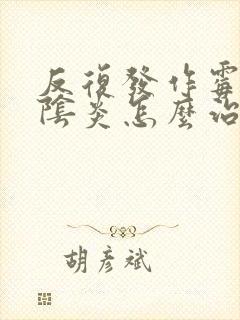 反復發作霉
陰炎怎麽治
胡彥斌